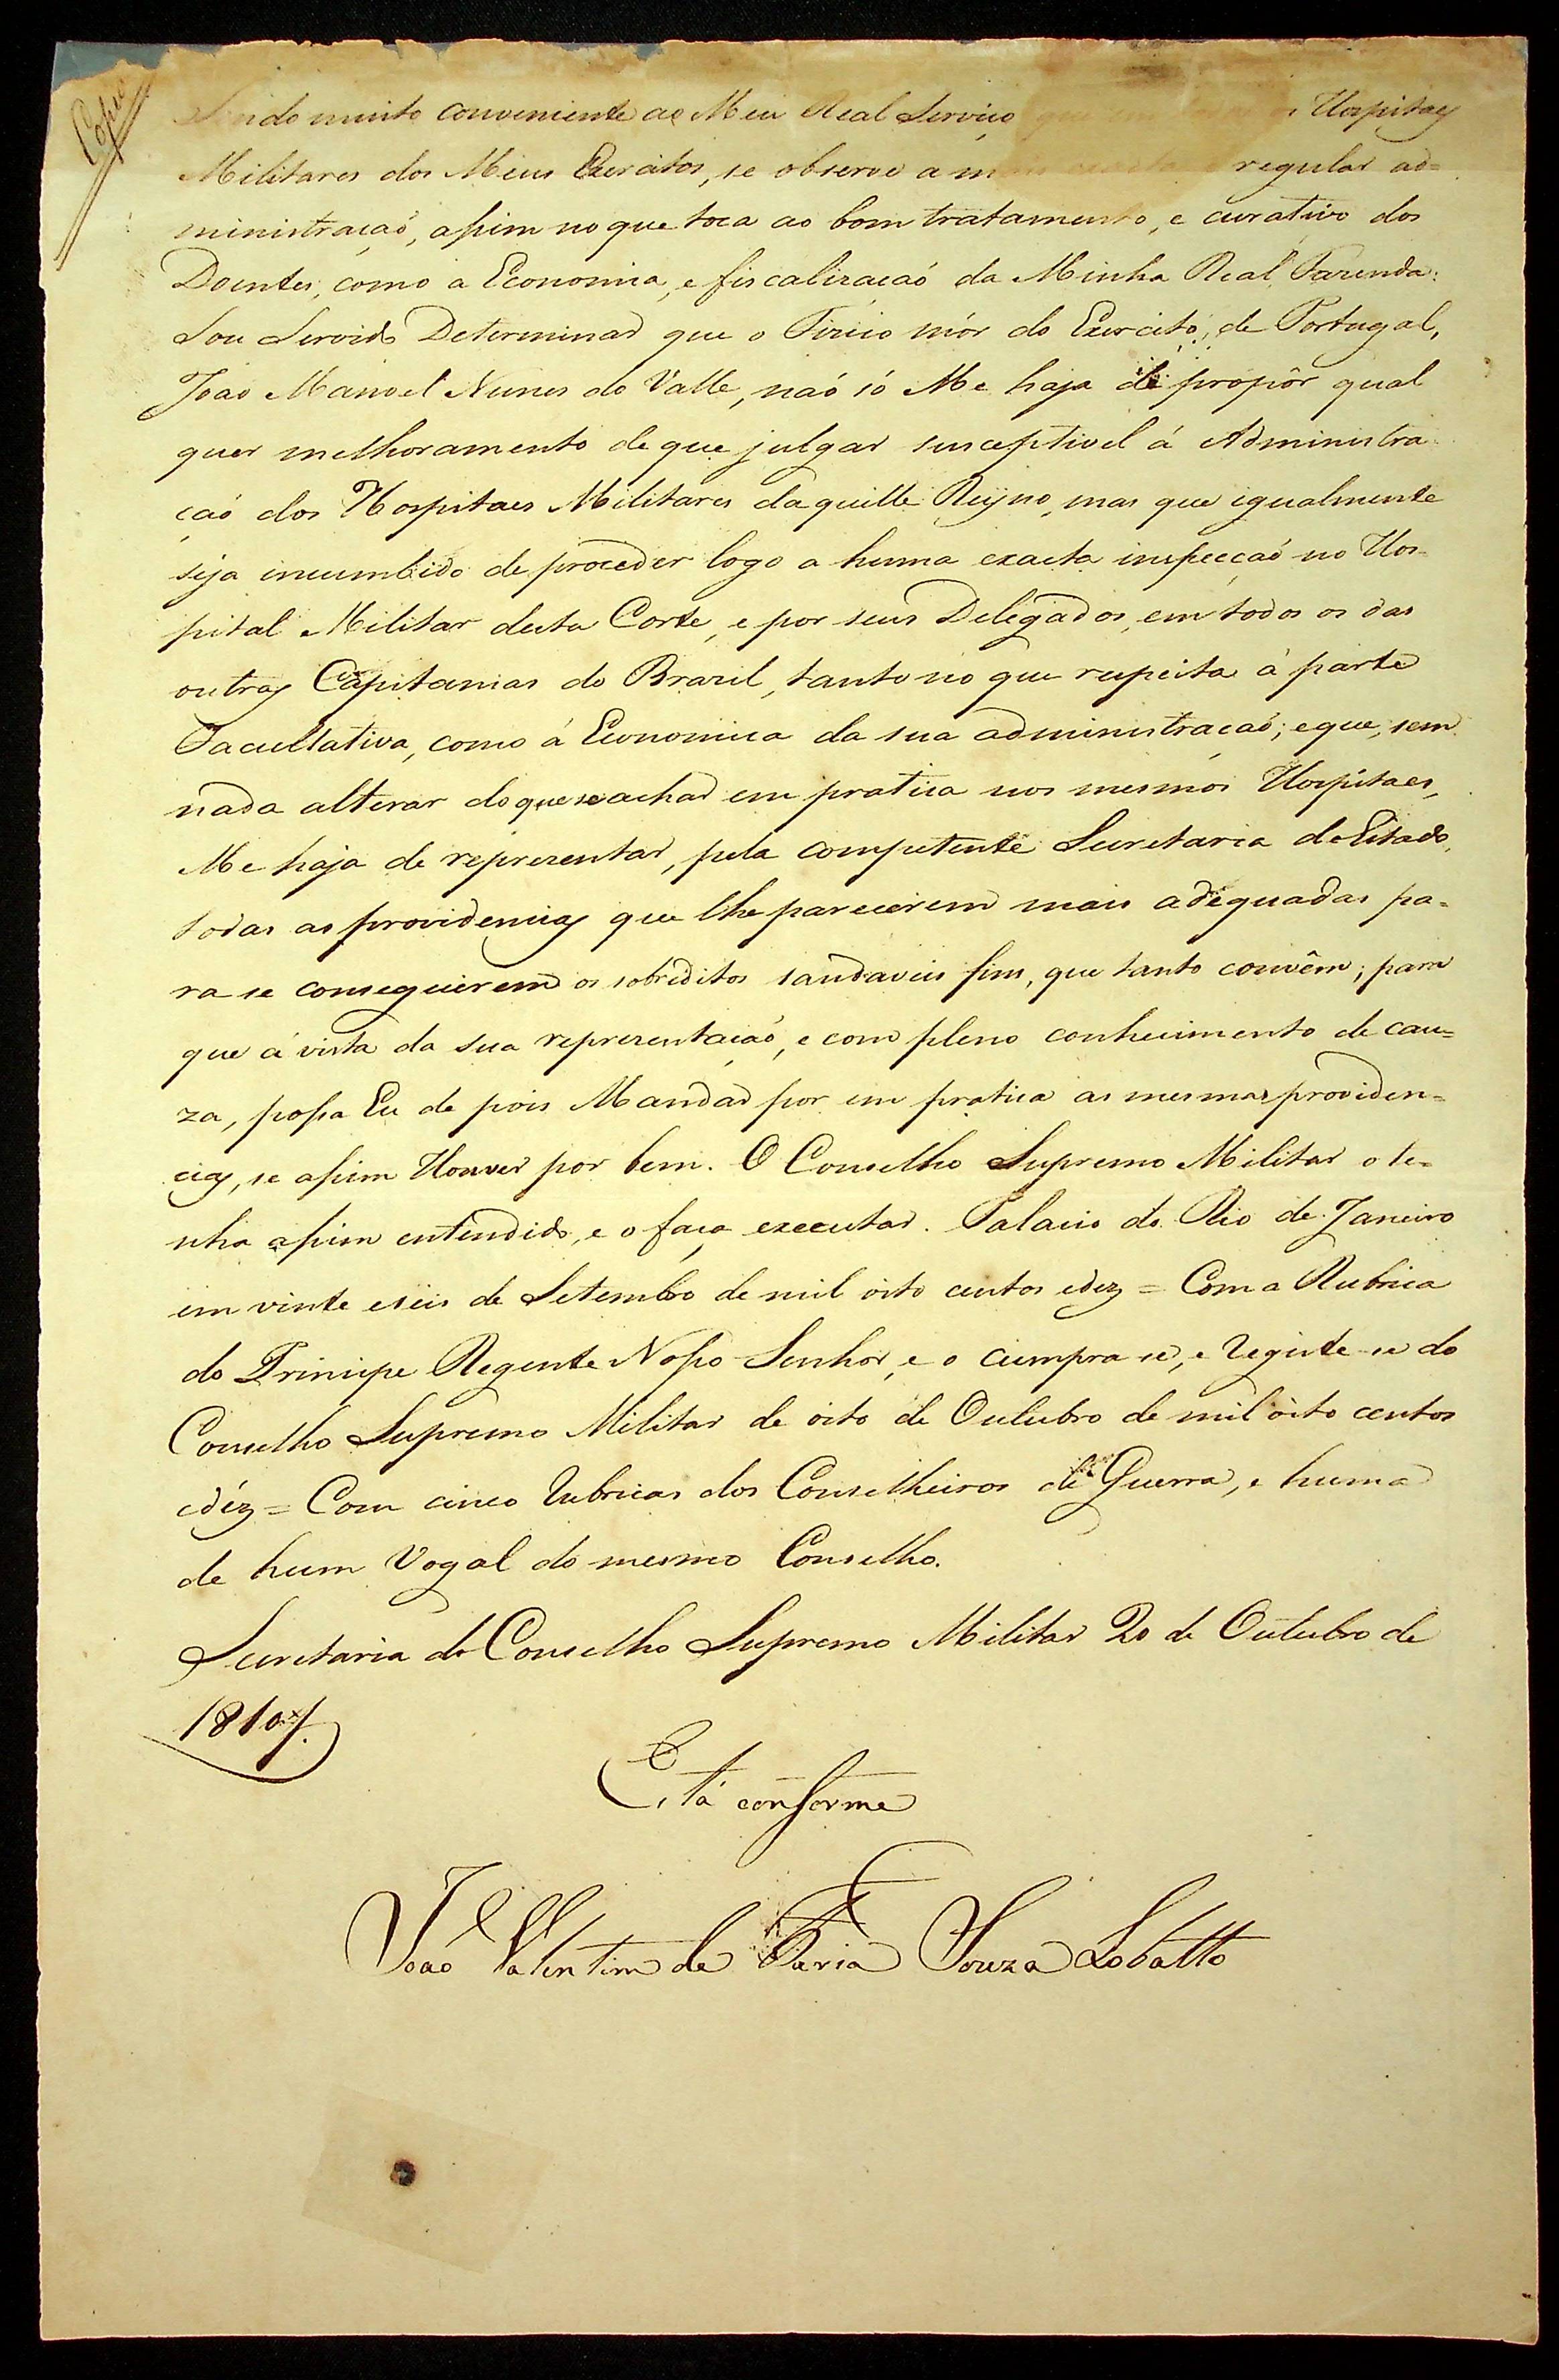 Copia
Sendo muito conveniente ao Meu Real Serviço que em Hospitaes
Militares dos Meus Exercitos, se observe a mais exacta e regular ad=
ministraçaõ, assim no que toca ao bom tratamento, e curativo dos
Doentes, como a Economia, e fiscalizaçaõ da Minha Real Fazenda:
Sou Servido Determinar que o Fizico mór do Exercito, de Portugal,
Joaõ Manoel Nunes do Valle, naõ só Me haja de propôr qual
quer melhoramento de que julgar susceptivel á Administra-
çaõ dos Hospitaes Militares daquelle Reyno, mas que igualmente
seja incumbido de proceder logo a huma exacta inspecçaõ no Hos-
pital Militar desta Corte, e por seus Delegados, em todos os das
outras Capitanias do Brazil, tanto no que respeita á parte
Facultativa, como á Economica da sua administraçaõ; e que, sem
nada alterar do que se achar em pratica nos mesmos Hospitaes,
Me haja de reprezentar, pela competente Secretaria de Estado,
todas as providencias que lhe parecerem mais adequadas pa-
ra se conseguirem os sobreditos saudaveis fins, que tanto convêm; para
que á vista da sua reprezentaçaõ, e com pleno conhecimento de cau=
za, possa Eu de pois Mandar por em pratica as mesmas providen=
cias, se assim Houver por bem. O Conselho Supremo Militar o te=
nha assim entendido, e o faça executar. Palacio do Rio de Janeiro
em vinte e seis de Setembro de mil oito centos e dez = Com a Rubrica
do Principe Regente Nosso Senhor, e o cumpra-se, e registe-se do
Conselho Supremo Militar de oito de Outubro de mil oito centos
e déz = Com cinco rubricas dos Conselheiros de Guerra, e huma
de hum Vogal do mesmo Conselho.
Secretaria do Conselho Supremo Militar 20 de Outubro de
1810.
Está conforme
Joaõ Valentim de Faria Souza Lobatto